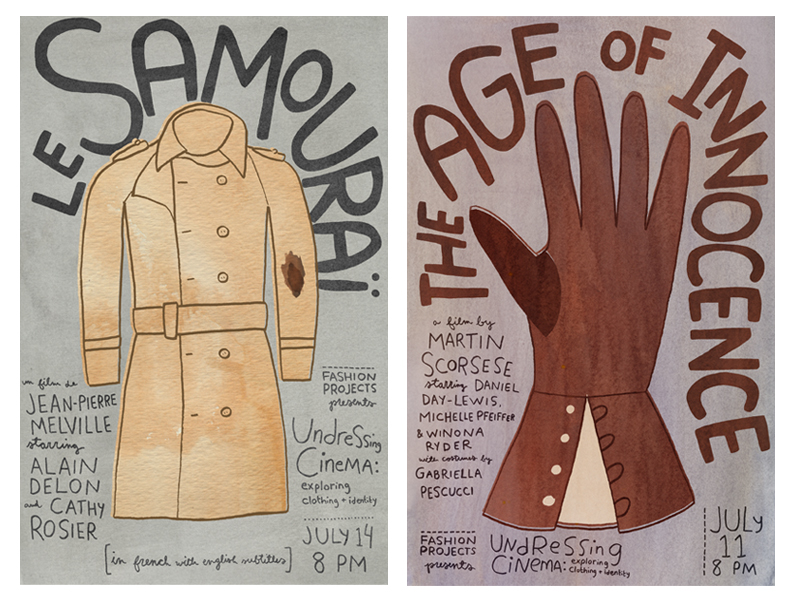 LE
SAMOURAÏ
un film de
JEAN-PIERRE
MELVILLE
starring
ALAIN
DELON
and CATHY
ROSIER
FASHION
PROJECTS
presents
UndreSSing
CinemA:
exploring
clothing + identity
JULY 14
8 PM
[in french with english subtitles]
THE AGE OF INNOCENCE
a film by
MARTIN
SCORSESE
starring DANIEL
DAY-LEWIS,
MICHELLE PFEIFFER
& WINONA
RYDER
with costumes by
GABRIELLA
PESCUCCI
FASHION
PROJECTS
presents
UNdReSSing
CiNEMA: exploring
clothing + identity
JULY
11
8 PM